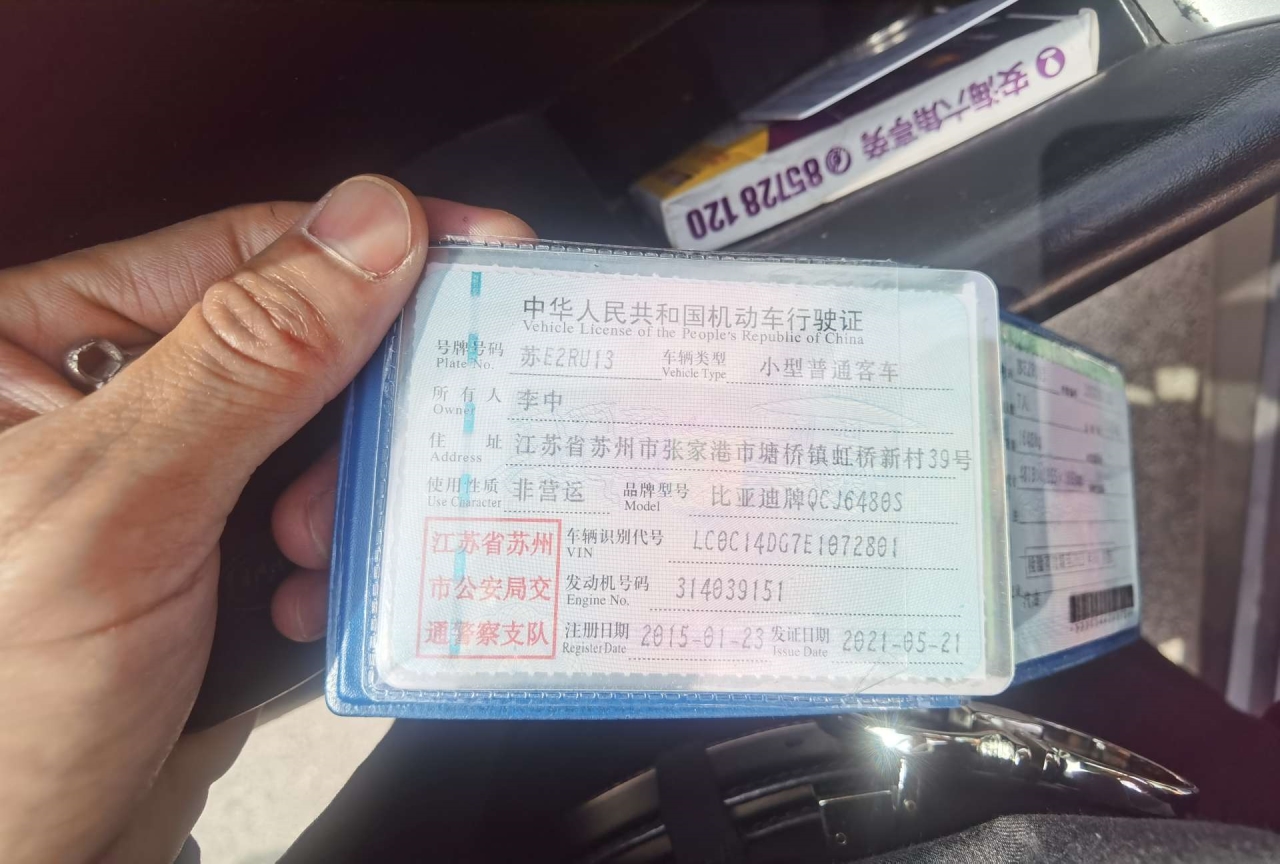 安海六角亭旁 85728 120
中华人民共和国机动车行驶证
Vehicle License of the People's Republic of China
号牌号码 苏E2RU13 车辆类型 小型普通客车
Plate No. Vehicle Type
所有人 李中
Owner
住址 江苏省苏州市张家港市塘桥镇虹桥新村39号
Address
使用性质 非营运 品牌型号 比亚迪牌QCJ6480S
Use Character Model
江苏省苏州 车辆识别代号 LC0C14DG7E1072801
VIN
市公安局交 发动机号码 314039151
Engine No.
通警察支队 注册日期 2015-01-23 发证日期 2021-05-21
Register Date Issue Date